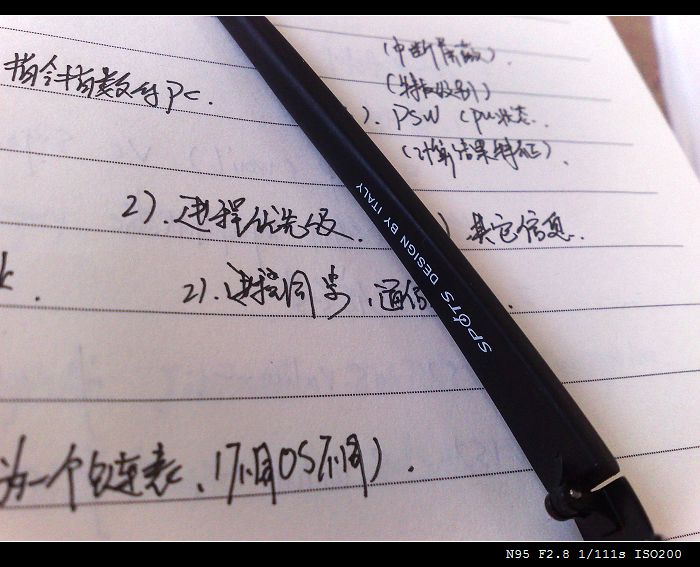 (中断屏蔽).
指令指数与PC.
(特权级别)
). PSW CPU状态.
(计算结果特征).
2). 进程优先级.
) 其它信息.
k.
2). 进程同步、通信
SPOTS DESIGN BY ITALY
为一个链表、(不同OS不同).
N95 F2.8 1/111s ISO200